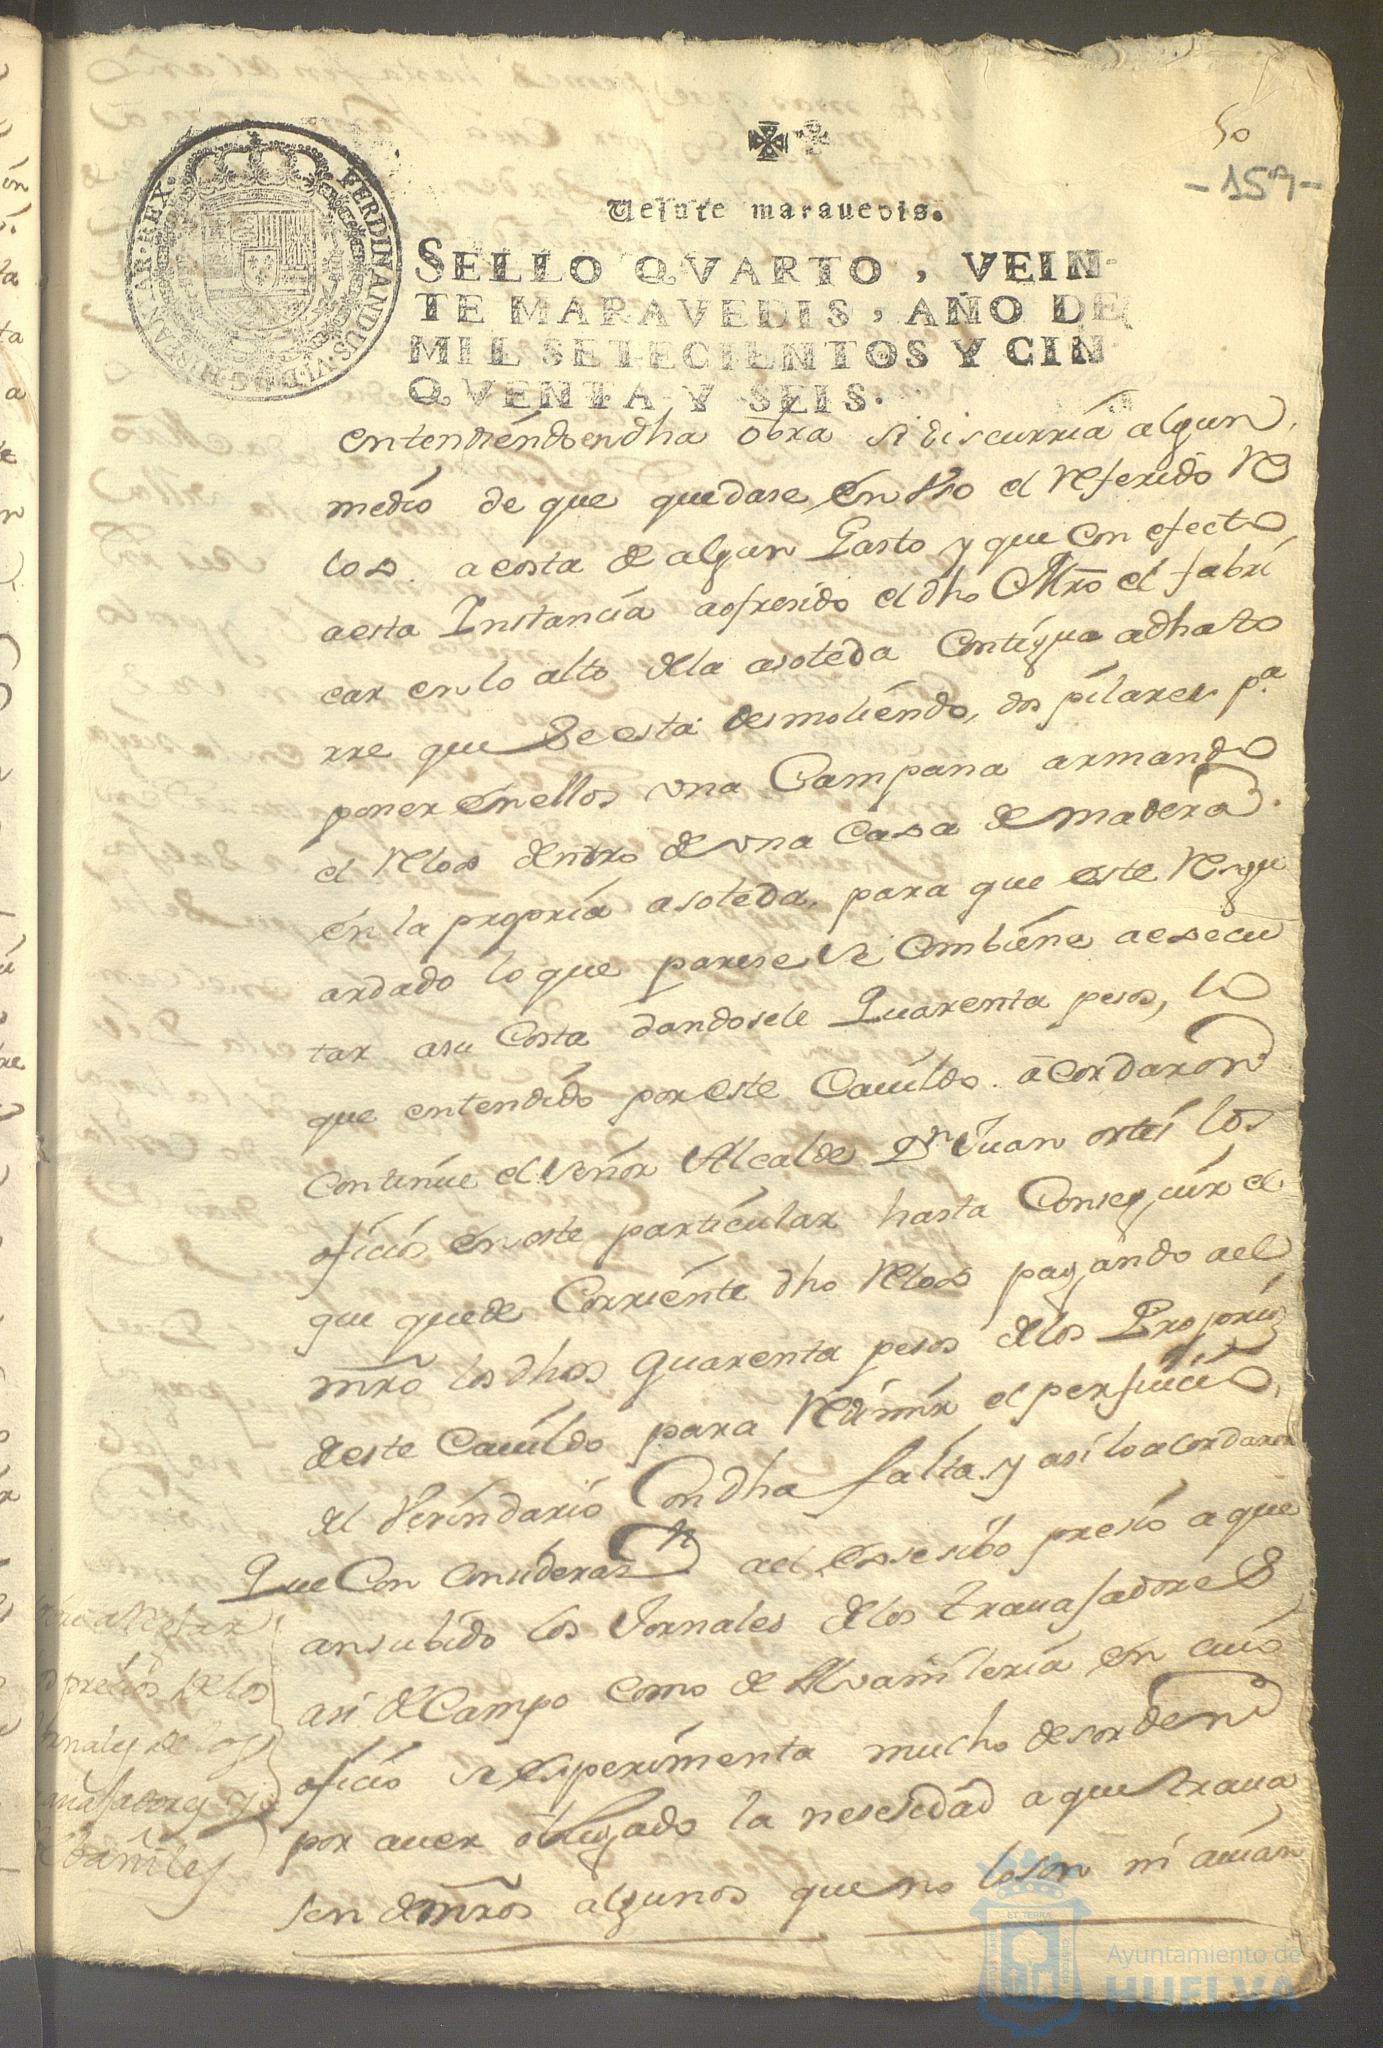 50
-157-
Veinte marauedis.
SELLO QVARTO, VEIN-
TE MARAVEDIS, AÑO DE
MIL SETECIENTOS Y CIN
QVENTA Y SEIS.
FERDINANDUS·VI·D·G·HISPANIAR·REX·
entendiéndo en dha obra si discurria algun
medio de que quedase en Vso el Referido Re
lox acosta de algun Gasto y que con efecto
a esta Instancia a ofresido el dho Mro el fabri
car en lo alto de la asoteda Contigua adha to
rre que Se esta desmoliéndo, dos pilares pa
poner én ellos vna Campana armando
el Relox dentro de vna Casa de madera
én la propria asoteda, para que este Resgu
ardado lo que parese Se combiene a esecu
tar asu Costa dandosele Quarenta pesos, lo
que entendido por este Cauildo acordaron
Continue el Señor Alcalde Dn Juan orta los
oficios én este particular hasta Conseguir el
que quede Corriente dho Relox pagando a el
mro los dhos quarenta pesos de los Proprios
deste Cauildo para Redimir el perjuicio
del Vesindario Con dha falta y asi lo acordaron
Que Con considerasn al exsesibo presio a que
an subido los Jornales de los trauajadores
asi de Campo como de Alvanileria én cuio
oficio se esperimenta mucho desorden
por auer obligado la nesesidad a que traua
sen de mros algunos que no lo son ni auian
precios de los
jornales de los
trauajadores y
Albañiles
ET TERRÆ
Ayuntamiento de
HUELVA